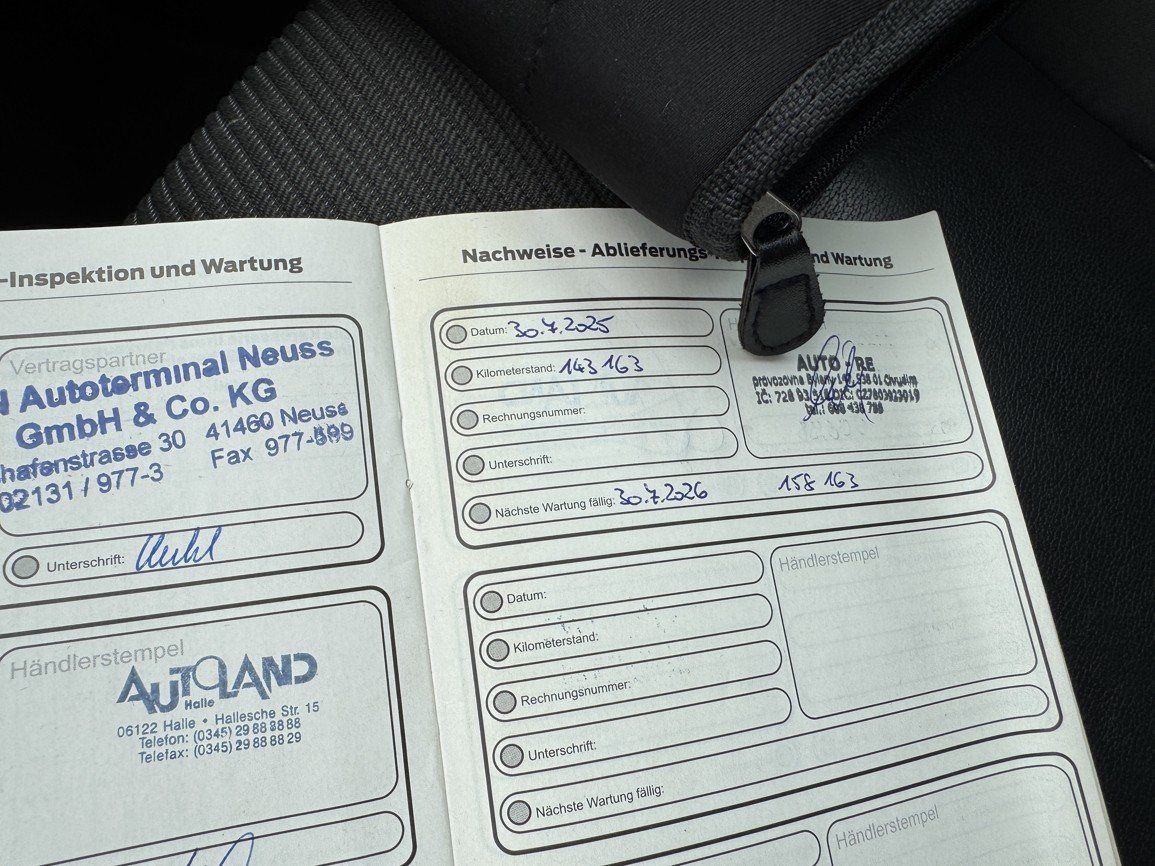 -Inspektion und Wartung
Vertragspartner
Autoterminal Neuss
GmbH & Co. KG
hafenstrasse 30 41460 Neuss
02131 / 977-3 Fax 977-899
Unterschrift:
Händlerstempel
AUTOLAND
Halle
06122 Halle • Hallesche Str. 15
Telefon: (0345) 29 88 88 88
Telefax: (0345) 29 88 88 29
Nachweise - Ablieferungs- nd Wartung
Datum: 30.7.2025
Kilometerstand: 143 163
Rechnungsnummer:
Unterschrift:
Nächste Wartung fällig: 30.7.2026 158 163
AUTO - RE
provozovna 538 01 Chrudim
Datum:
Kilometerstand:
Rechnungsnummer:
Unterschrift:
Nächste Wartung fällig:
Händlerstempel
Händlerstempel